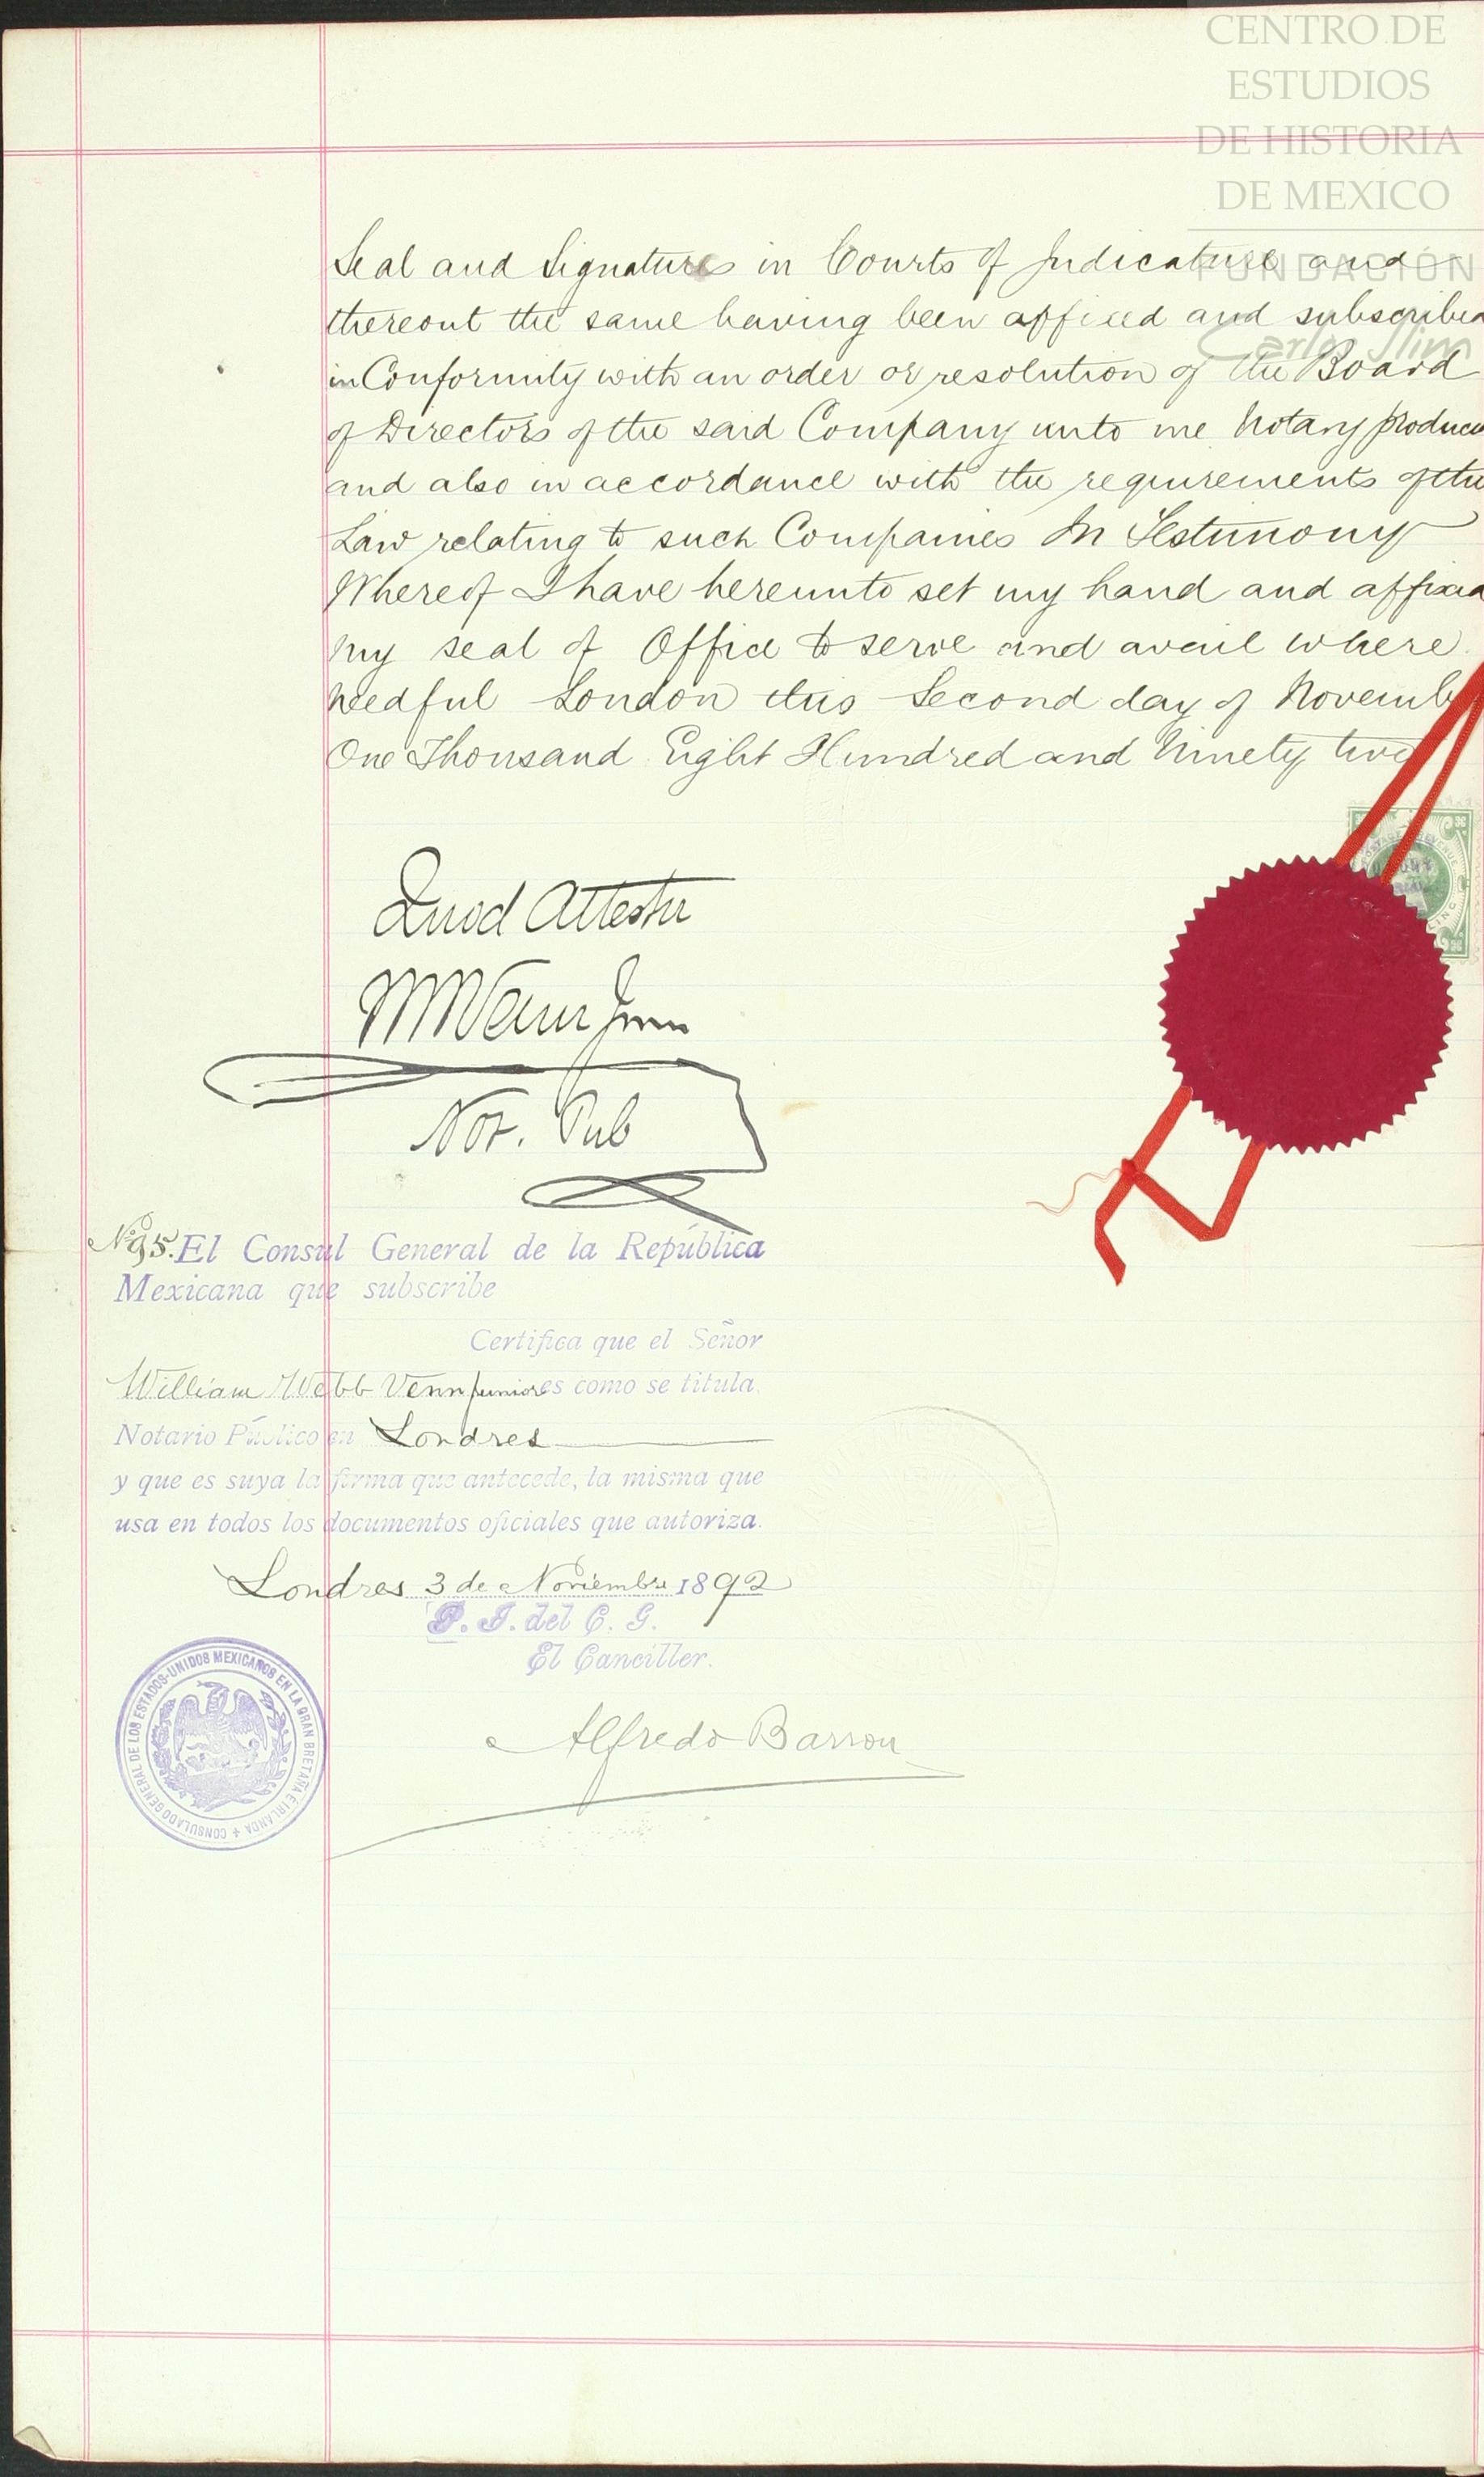 CENTRO DE
ESTUDIOS
DE HISTORIA
DE MEXICO
FUNDACIÓN
Carlos Slim
Seal and Signatures in Courts of Judicature and
thereout the same having been affixed and subscribed
in Conformity with an order or resolution of the Board
of Directors of the said Company unto me Notary produced
and also in accordance with the requirements of the
Law relating to such Companies In Testimony
Whereof I have hereunto set my hand and affixed
my seal of Office to serve and avail where
needful London this Second day of Novemb
One Thousand Eight Hundred and Ninety two
Quod Attestor
WWVenn Junr
Not. Pub
Nº 95. El Consul General de la República
Mexicana que subscribe
Certifica que el Señor
William Webb Venn junior es como se titula,
Notario Público en Londres
y que es suya la firma que antecede, la misma que
usa en todos los documentos oficiales que autoriza.
Londres 3 de Noviembre 1892
P. I. del C. G.
El Canciller.
Alfredo Barron
CONSULADO GENERAL DE LOS ESTADOS-UNIDOS MEXICANOS EN LA GRAN BRETAÑA É IRLANDA